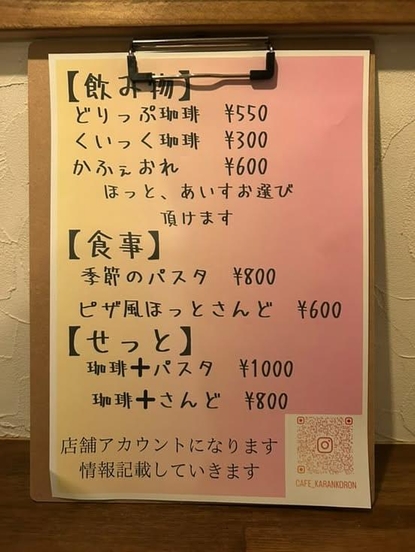 【飲み物】
どりっぷ珈琲 ¥550
くいっく珈琲 ¥300
かふぇおれ ¥600
ほっと、あいすお選び
頂けます
【食事】
季節のパスタ ¥800
ピザ風ほっとさんど ¥600
【せっと】
珈琲➕パスタ ¥1000
珈琲➕さんど ¥800
店舗アカウントになります
情報記載していきます
CAFE_KARANKORON